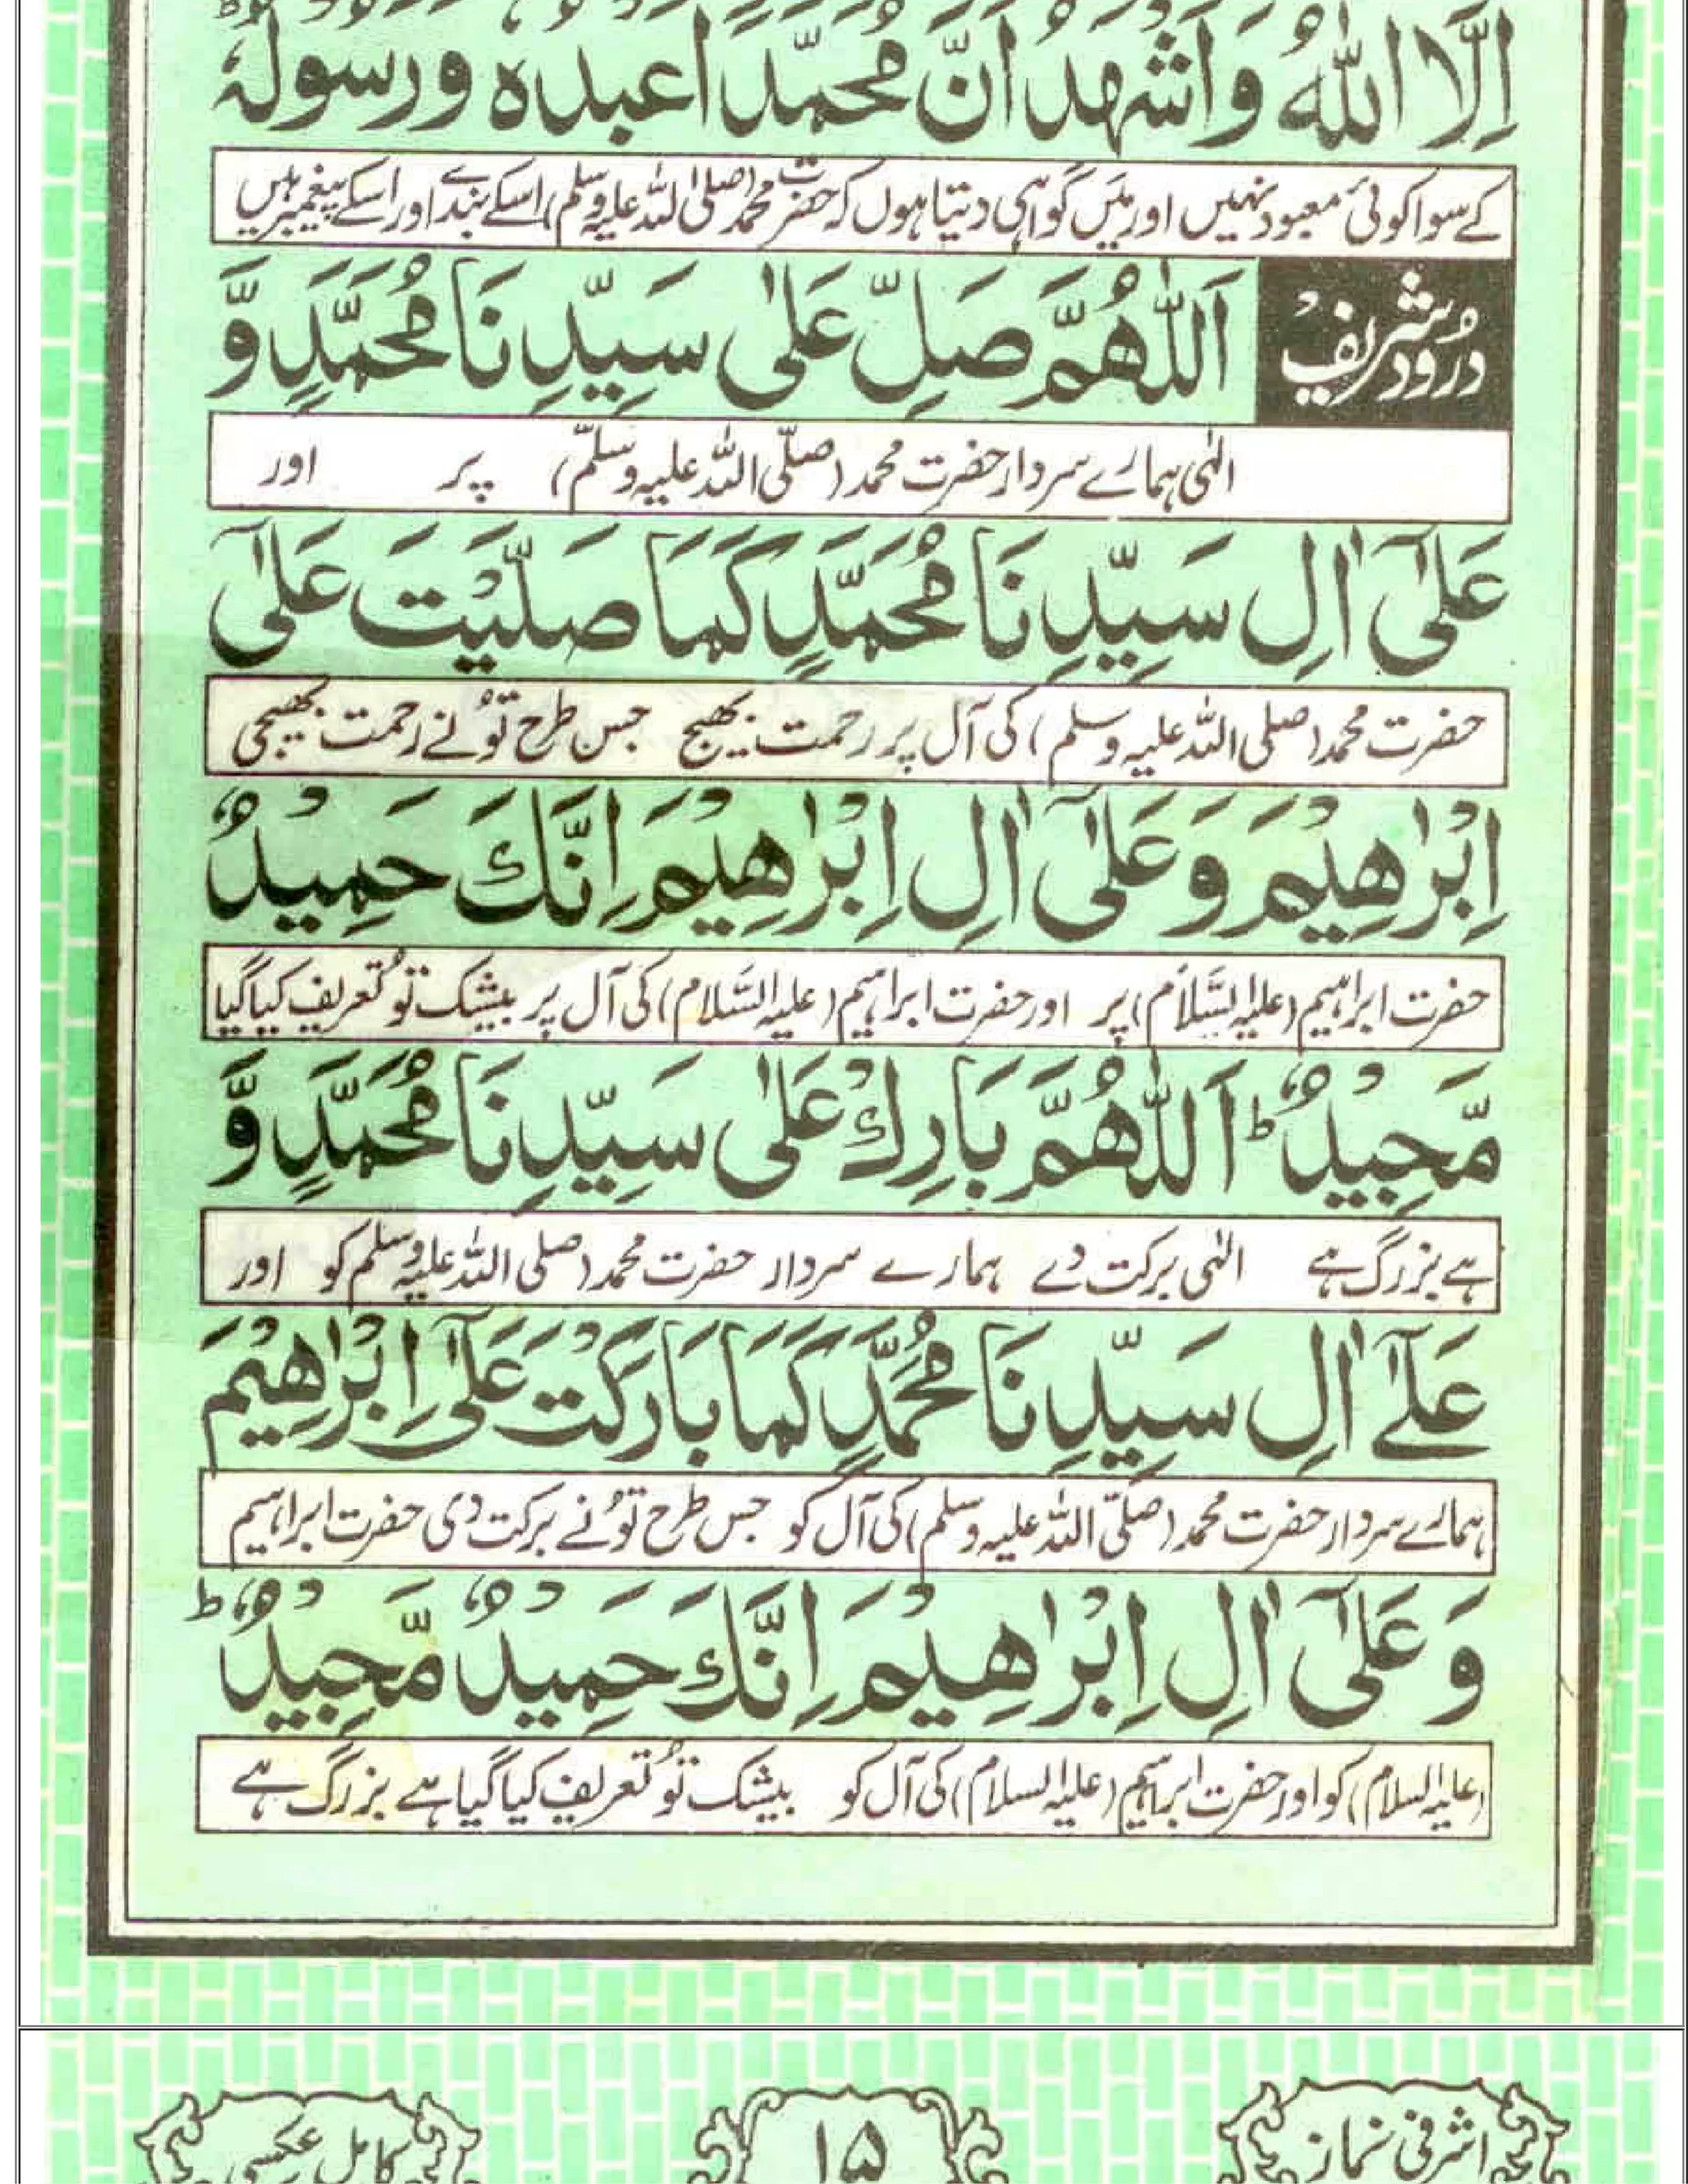 اِلَّا اللّٰهُ وَاَشْهَدُ اَنَّ مُحَمَّدًا عَبْدُهٗ وَرَسُولُهٗ
کے سوا کوئی معبود نہیں اور میں گواہی دیتا ہوں کہ حضرت محمد (صلی اللہ علیہ وسلم) اسکے بندے اور اسکے پیغمبر ہیں
درُود شریف
اَللّٰهُمَّ صَلِّ عَلٰى سَيِّدِنَا مُحَمَّدٍ وَّ
الٰہی ہمارے سردار حضرت محمد (صلّی اللہ علیہ وسلّم) پر اور
عَلٰٓى اٰلِ سَيِّدِنَا مُحَمَّدٍ كَمَا صَلَّيْتَ عَلٰٓى
حضرت محمد (صلی اللہ علیہ وسلم) کی آل پر رحمت بھیج جس طرح تُو نے رحمت بھیجی
اِبْرٰهِيْمَ وَعَلٰٓى اٰلِ اِبْرٰهِيْمَ اِنَّكَ حَمِيْدٌ
حضرت ابراہیم (علیہ السَّلام) پر اور حضرت ابراہیم (علیہ السَّلام) کی آل پر بیشک تُو تعریف کیا گیا
مَّجِيْدٌ ؕ اَللّٰهُمَّ بَارِكْ عَلٰى سَيِّدِنَا مُحَمَّدٍ وَّ
ہے بزرگ ہے الٰہی برکت دے ہمارے سردار حضرت محمد (صلی اللہ علیہ وسلم کو اور
عَلٰٓے اٰلِ سَيِّدِنَا مُحَمَّدٍ كَمَا بَارَكْتَ عَلٰٓى اِبْرٰهِيْمَ
ہمارے سردار حضرت محمد (صلّی اللہ علیہ وسلم) کی آل کو جس طرح تُو نے برکت دی حضرت ابراہیم
وَعَلٰٓى اٰلِ اِبْرٰهِيْمَ اِنَّكَ حَمِيْدٌ مَّجِيْدٌ ؕ
(علیہ السلام) کو اور حضرت ابراہیم (علیہ السلام) کی آل کو بیشک تُو تعریف کیا گیا ہے بزرگ ہے
اشرفی نماز
۱۵
کامل عکسی